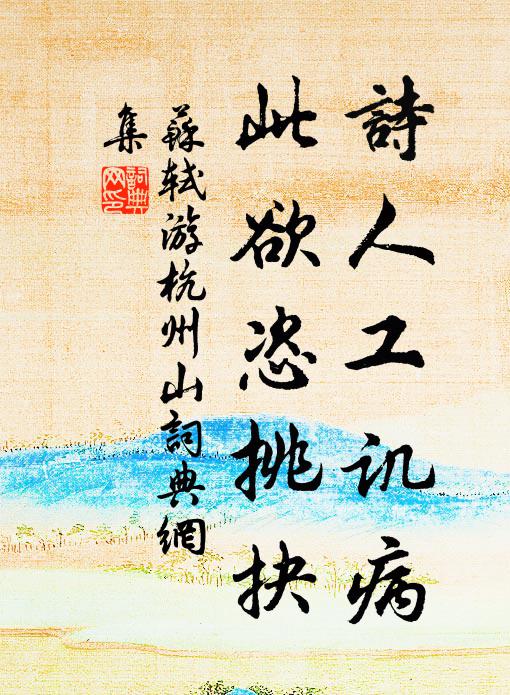 詩人工讥病
此欲恣挑抉
蘇轼游杭州山詞典網
集
詞典
网印